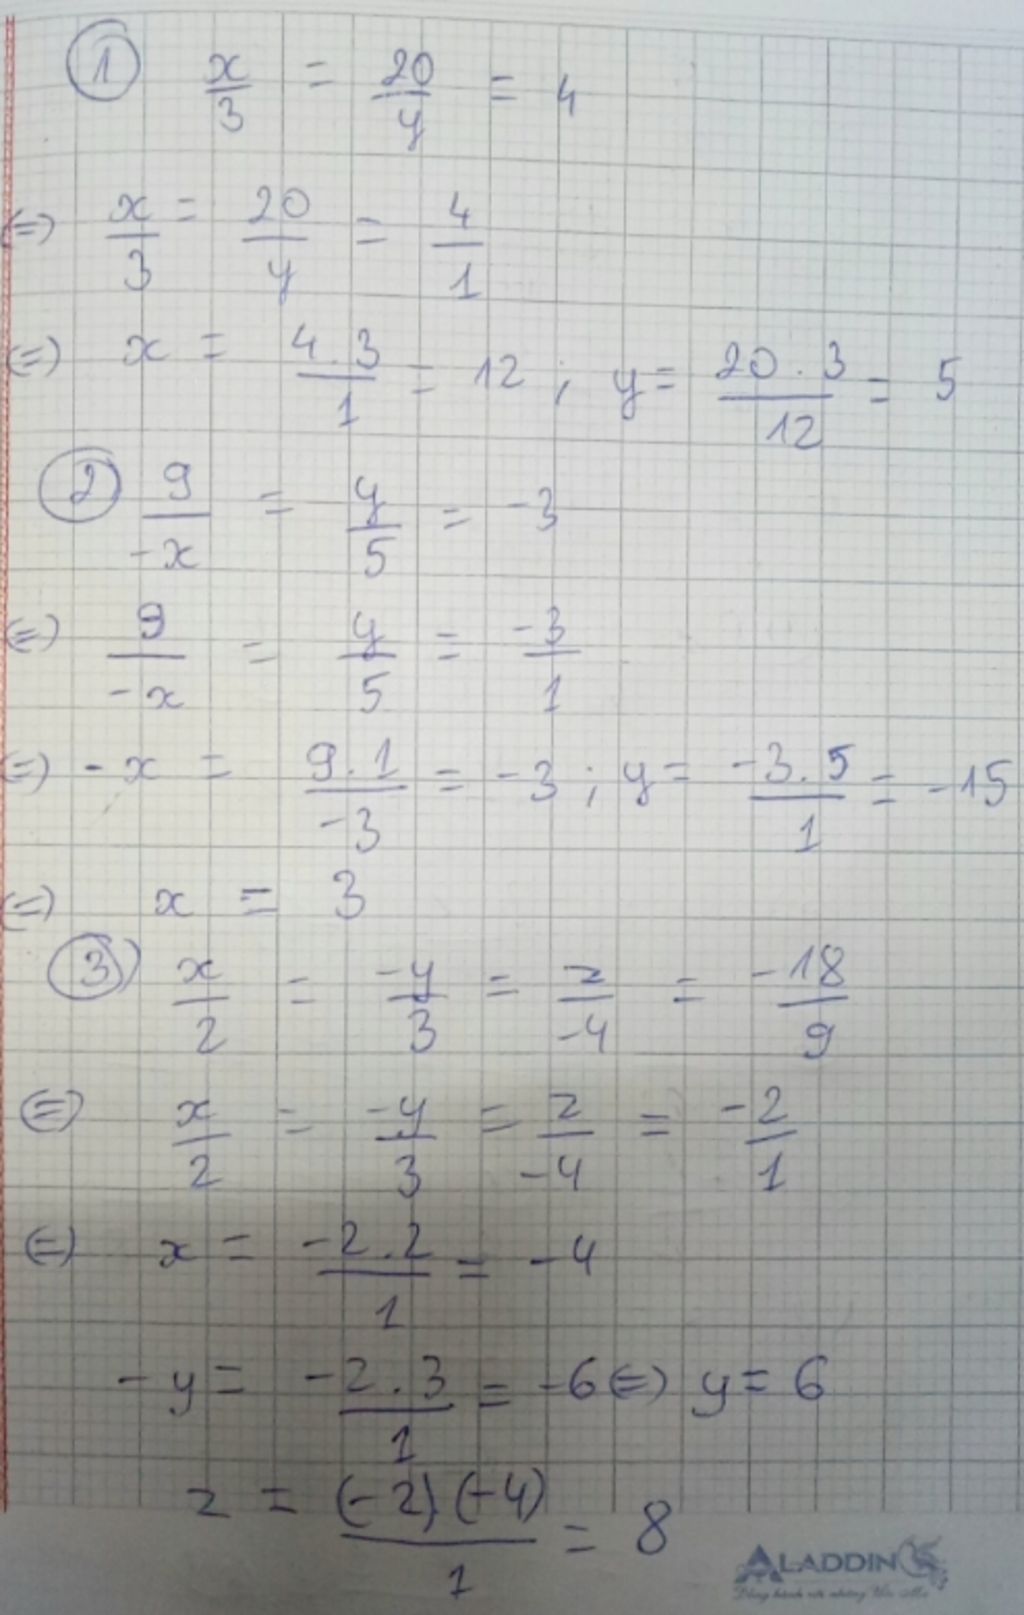 ① x/3 = 20/y = 4
(=) x/3 = 20/y = 4/1
(=) x = 4.3/1 = 12 ; y = 20.3/12 = 5
② 9/-x = y/5 = -3
(=) 9/-x = y/5 = -3/1
(=) -x = 9.1/-3 = -3 ; y = -3.5/1 = -15
(=) x = 3
③) x/2 = -y/3 = z/-4 = -18/9
(=) x/2 = -y/3 = z/-4 = -2/1
(=) x = -2.2/1 = -4
-y = -2.3/1 = -6 (=) y = 6
z = (-2)(-4)/1 = 8
ALADDIN